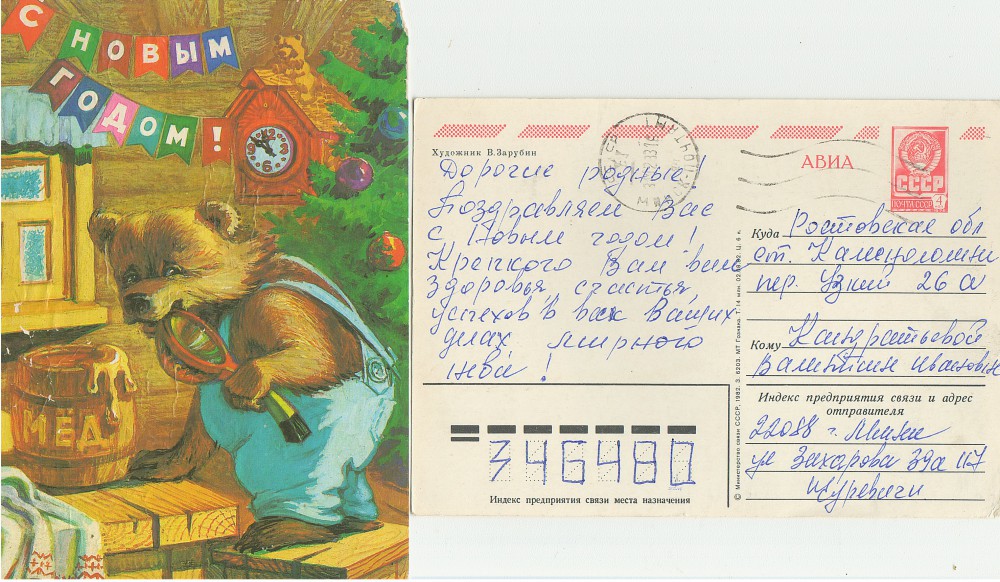 С
НОВЫМ
ГОДОМ!
МЕД
Художник В.Зарубин
АВИА
СССР
ПОЧТА СССР
Дорогие родные!
Поздравляем Вас
с Новым годом!
Крепкого Вам всем
здоровья, счастья,
успехов в всех Ваших
делах, мирного
неба!
Куда Ростовская обл
ст. Каменоломни
пер. Узкий 26 а
Кому Кандратьевой
Валентине Ивановне
Индекс предприятия связи и адрес
отправителя
22088 г. Минск
ул Захарова
Шуревичи
346480
Индекс предприятия связи места назначения
© Министерство связи СССР, 1982. З. 6203. МТ Гознака.